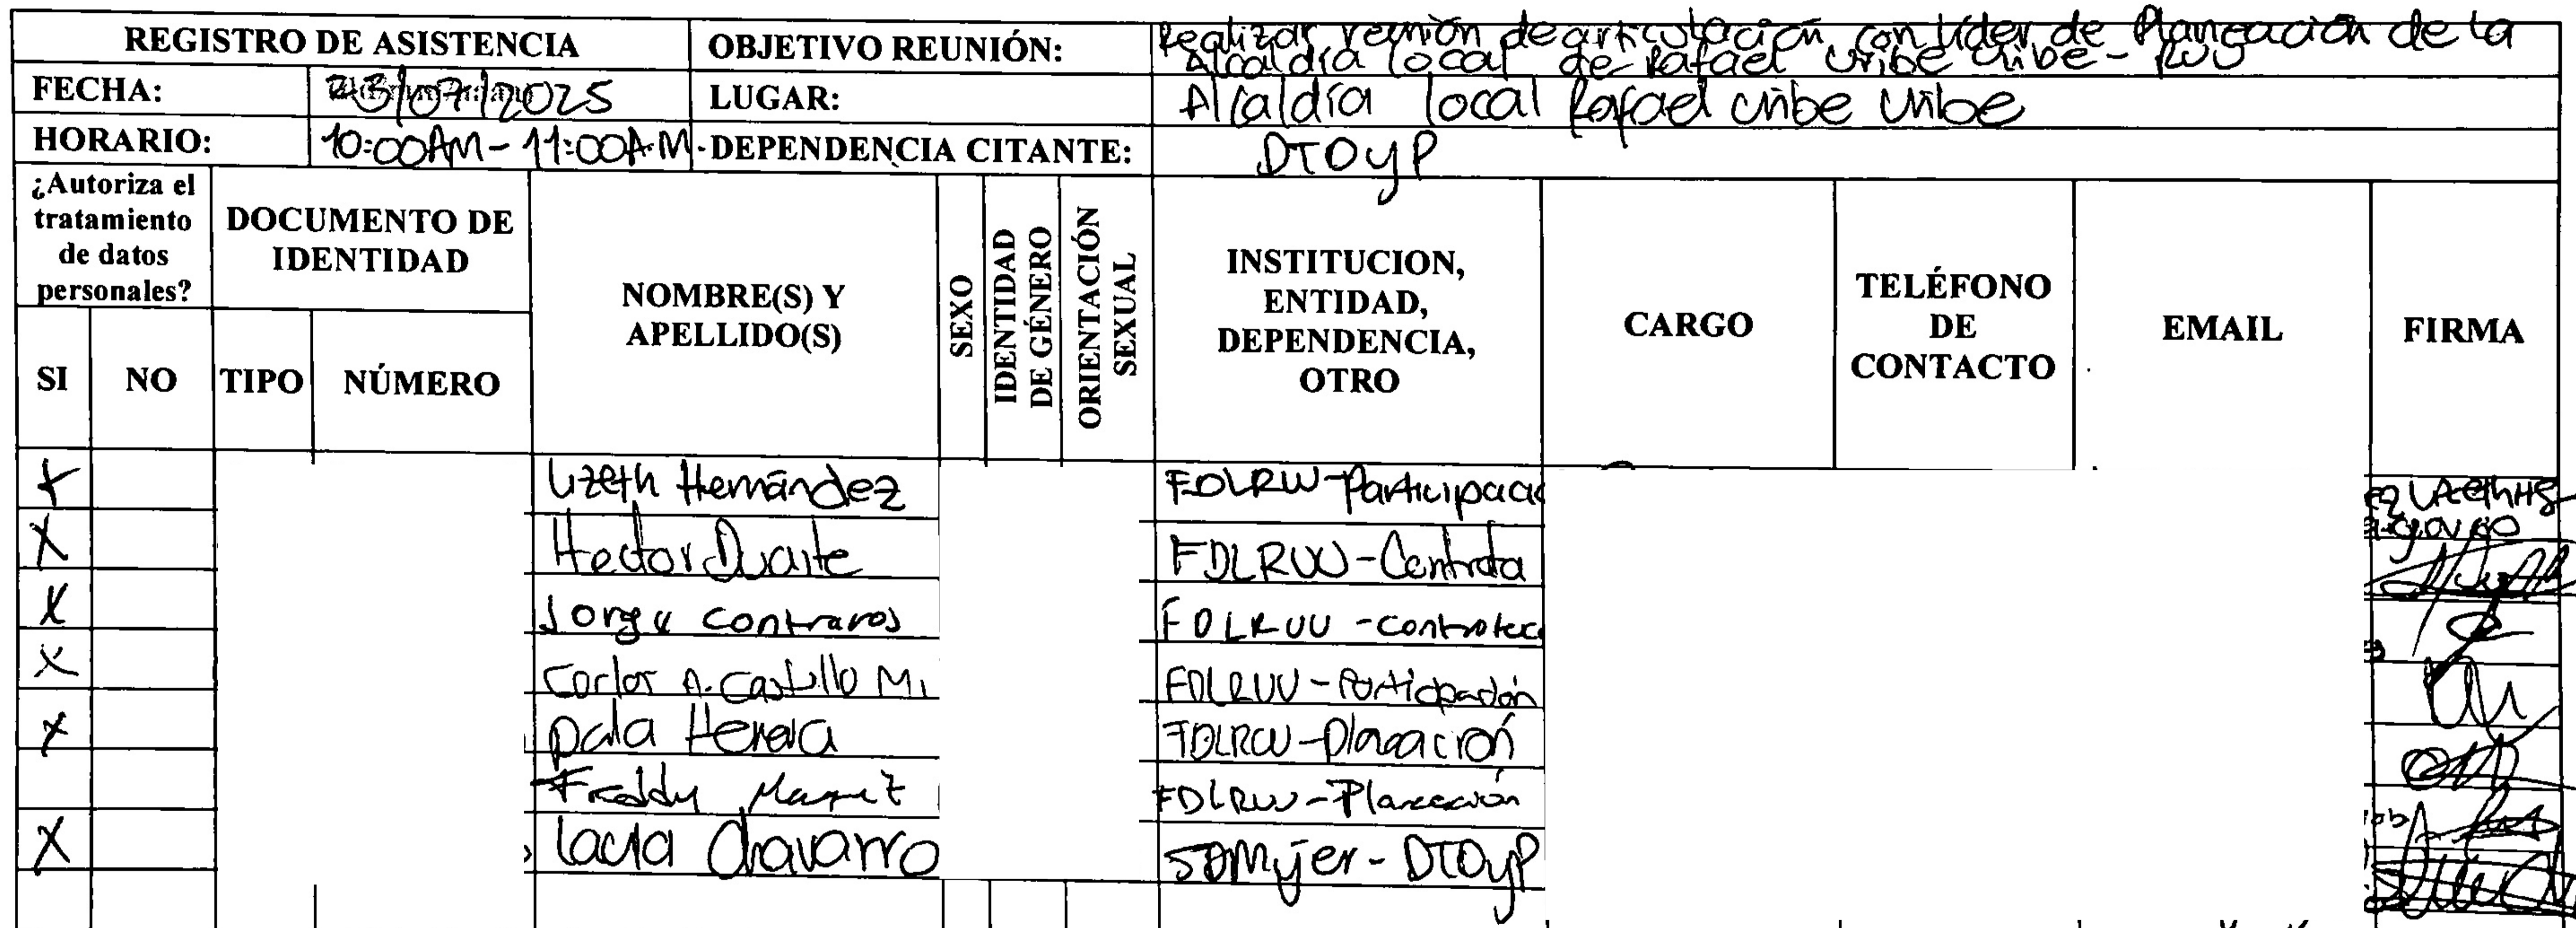 REGISTRO DE ASISTENCIA OBJETIVO REUNIÓN: Realizar reunión de articulación con líder de Planeación de la
Alcaldía local de Rafael Uribe Uribe - RUU
FECHA: 23/07/2025 LUGAR: Alcaldía local Rafael Uribe Uribe
HORARIO: 10:00AM - 11:00A.M. DEPENDENCIA CITANTE: DTOyP
¿Autoriza el tratamiento de datos personales?
SI NO
DOCUMENTO DE IDENTIDAD
TIPO NÚMERO
NOMBRE(S) Y APELLIDO(S)
SEXO
IDENTIDAD DE GÉNERO
ORIENTACIÓN SEXUAL
INSTITUCION, ENTIDAD, DEPENDENCIA, OTRO
CARGO
TELÉFONO DE CONTACTO
EMAIL
FIRMA
X Lizeth Hernández FDLRUU-Participac
X Hector Duarte FDLRUU-Contrata
X Jorge Contreras FDLRUU-contratac
X Carlos A. Castillo M. FDLRUU-Participación
X Paola Herrera FDLRUU-Planeación
Freddy FDLRUU-Planeación
X Chavarro SDMujer-DTOyP